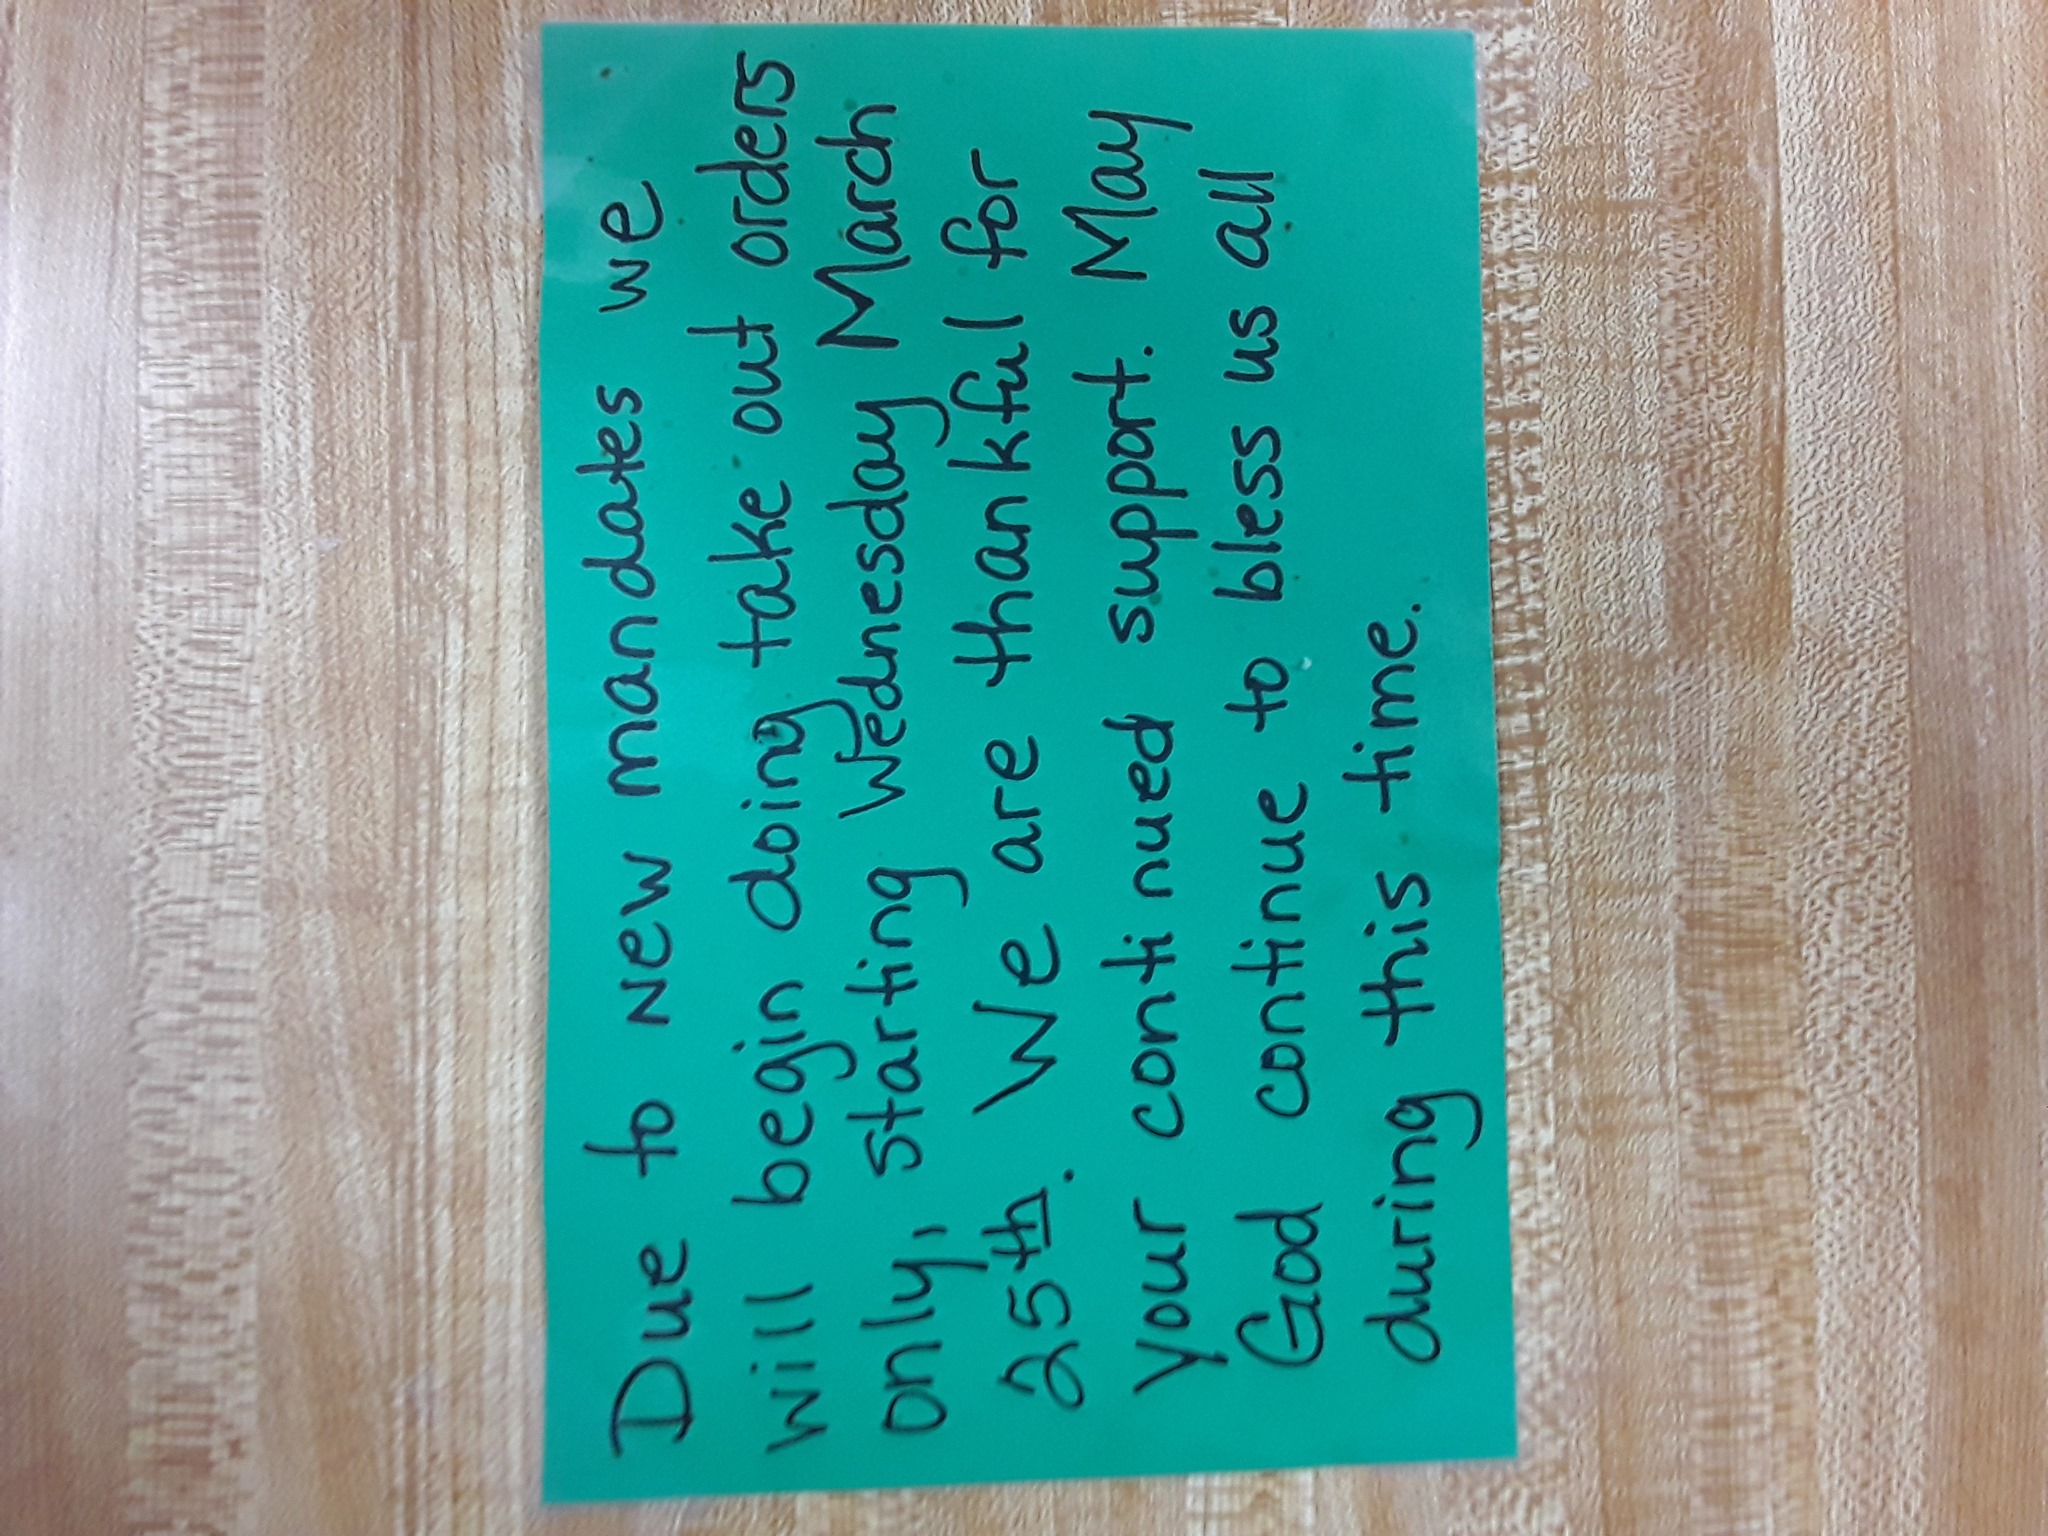 Due to new mandates we
will begin doing take out orders
only, starting Wednesday March
25th. We are thankful for
your continued support. May
God continue to bless us all
during this time.